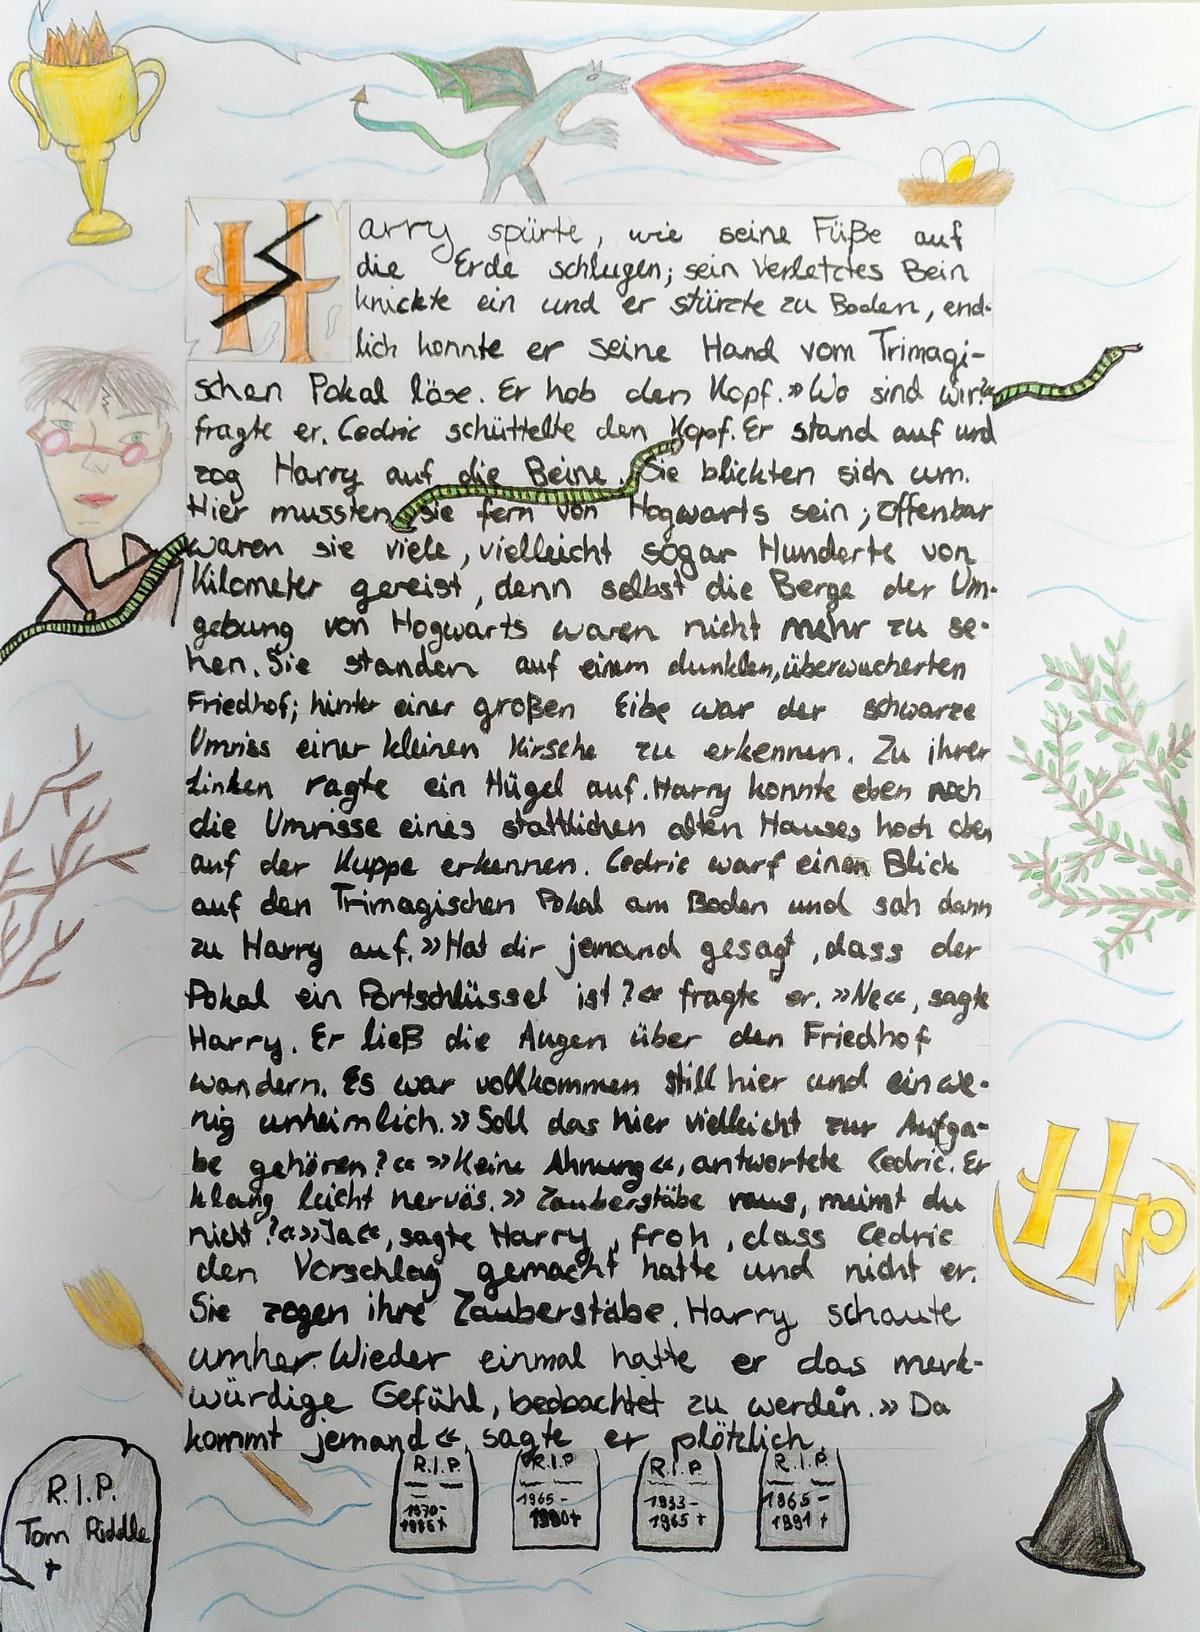 Harry spürte, wie seine Füße auf
die Erde schlugen; sein verletztes Bein
knickte ein und er stürzte zu Boden, end-
lich konnte er seine Hand vom Trimagi-
schen Pokal löse. Er hob den Kopf. »Wo sind wir?«
fragte er. Cedric schüttelte den Kopf. Er stand auf und
zog Harry auf die Beine. Sie blickten sich um.
Hier mussten sie fern von Hogwarts sein; offenbar
waren sie viele, vielleicht sogar Hunderte von
Kilometer gereist, denn selbst die Berge der Um-
gebung von Hogwarts waren nicht mehr zu se-
hen. Sie standen auf einem dunklen, überwucherten
Friedhof; hinter einer großen Eibe war der schwarze
Umriss einer kleinen Kirsche zu erkennen. Zu ihrer
Linken ragte ein Hügel auf. Harry konnte eben noch
die Umrisse eines stattlichen alten Hauses hoch oben
auf der Kuppe erkennen. Cedric warf einen Blick
auf den Trimagischen Pokal am Boden und sah dann
zu Harry auf. »Hat dir jemand gesagt, dass der
Pokal ein Portschlüssel ist?« fragte er. »Ne«, sagte
Harry. Er ließ die Augen über den Friedhof
wandern. Es war vollkommen still hier und ein we-
nig unheimlich. »Soll das hier vielleicht zur Aufga-
be gehören?« »Keine Ahnung«, antwortete Cedric. Er
klang leicht nervös. »Zauberstäbe raus, meinst du
nicht?« »Ja«, sagte Harry, froh, dass Cedric
den Vorschlag gemacht hatte und nicht er.
Sie zogen ihre Zauberstäbe. Harry schaute
umher. Wieder einmal hatte er das merk-
würdige Gefühl, beobachtet zu werden. »Da
kommt jemand«, sagte er plötzlich.
Hp
R.I.P.
Tom Riddle
+
R.I.P.
1970-
1986+
R.I.P
1965-
1990+
R.I.P.
1933-
1965+
R.I.P.
1965-
1991+